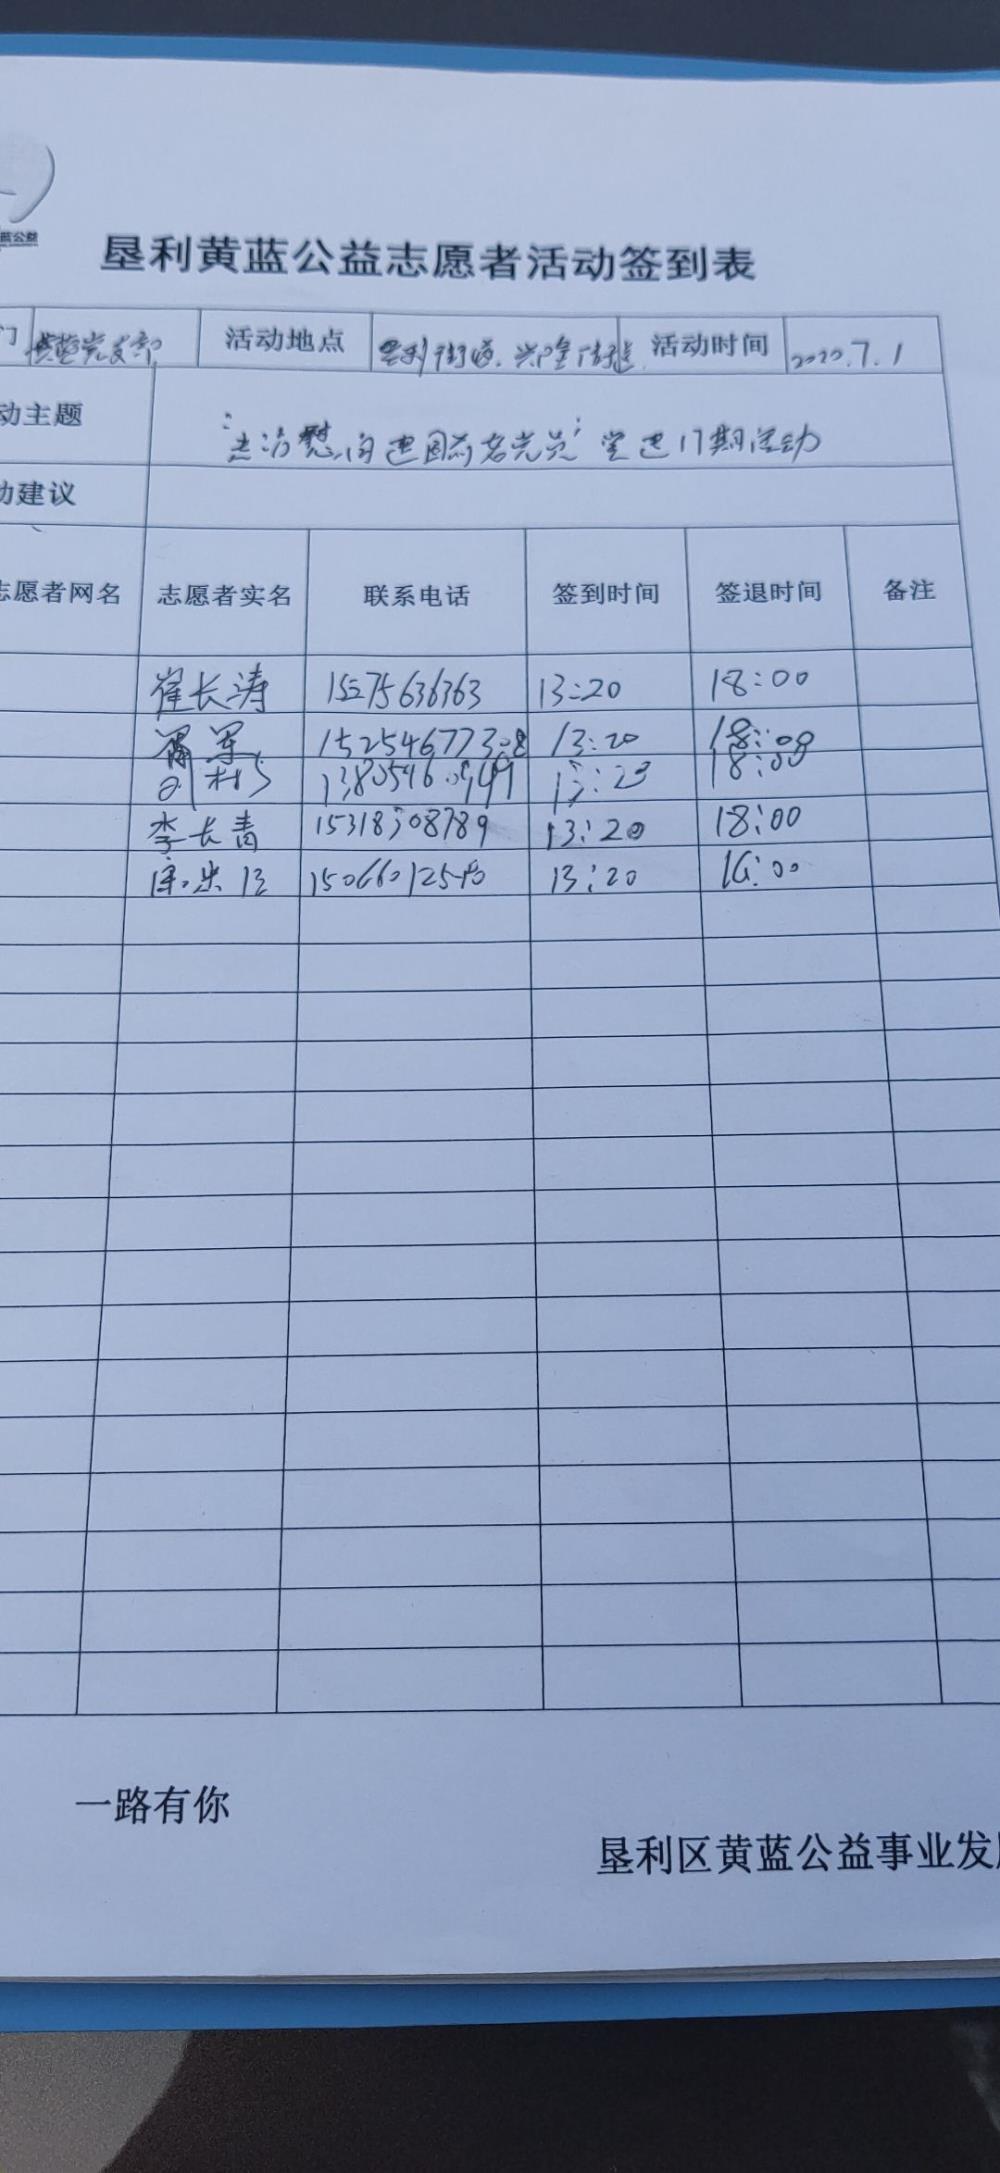 蓝公益
垦利黄蓝公益志愿者活动签到表
门 黄蓝党支部 活动地点 垦利街道、兴隆街道 活动时间 2020.7.1
动主题 "走访慰问建国前老党员" 第 17期活动
动建议
志愿者网名 志愿者实名 联系电话 签到时间 签退时间 备注
崔长涛 15275636363 13:20 18:00
军 15254677308 13:20 18:00
刘 18:00
李长青 15318308789 13:20 18:00
13:20 16:00
一路有你
垦利区黄蓝公益事业发